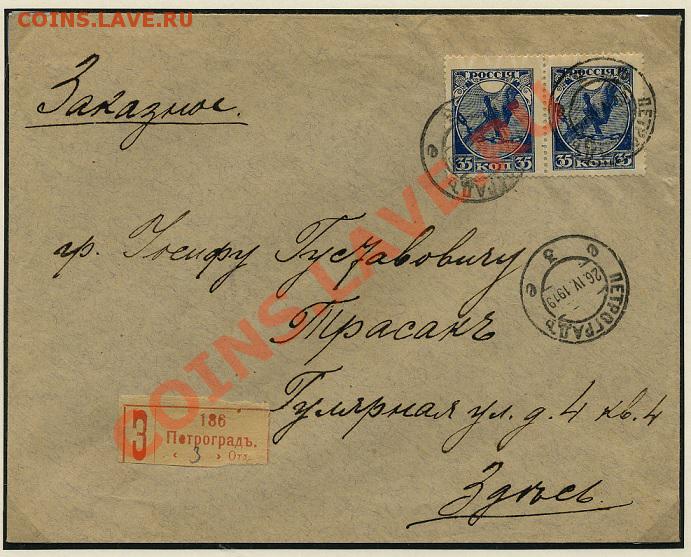 COINS.LAVE.RU
Заказное.
РОССІЯ РОССІЯ
35 КОП 35 35 КОП 35
гр. Іосифу Густавовичу
Трасакъ
Гулярная ул. д. 4 кв. 4
Здѣсь.
ПЕТРОГРАДЪ
26.IV.1919
3
е е
З
186
Петроградъ.
‹ 3 › Отд.
COINS.LAVE.RU